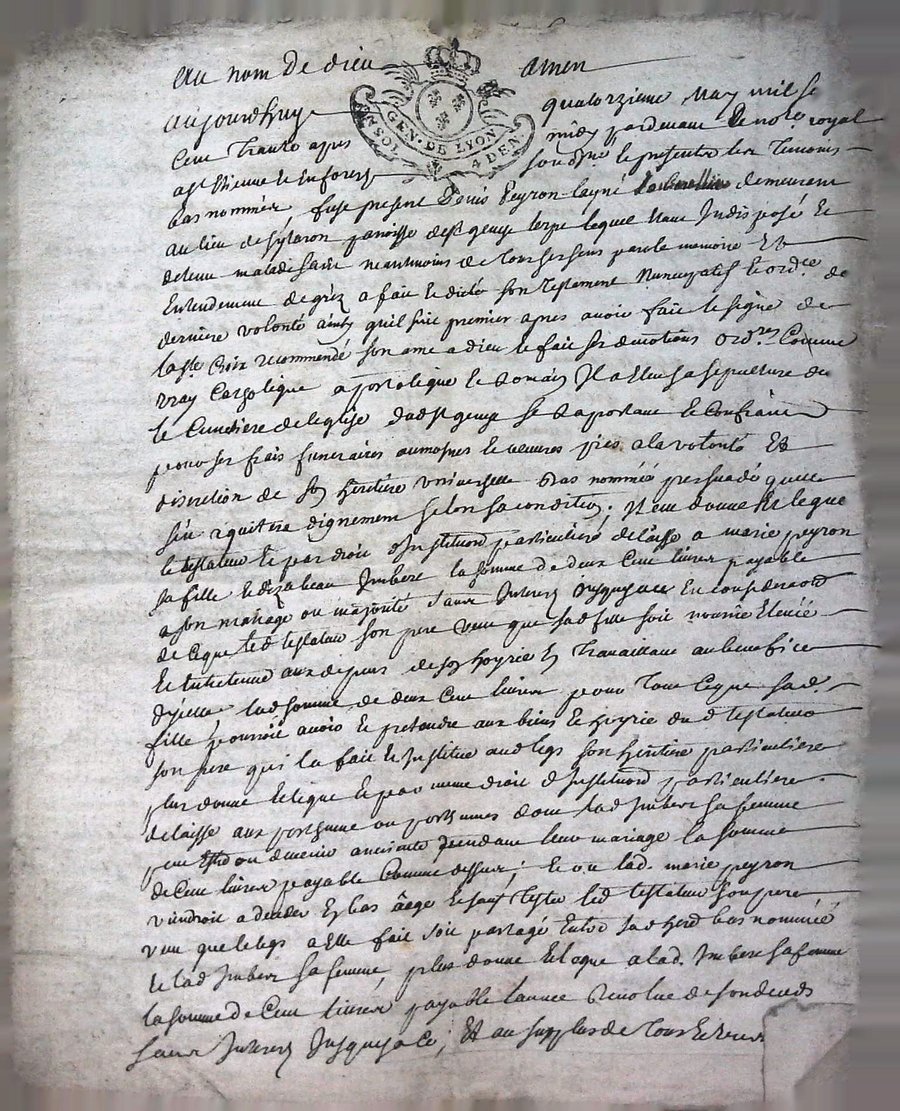 Au nom de dieu amen
GEN. DE LYON
SOL 4 DEN.
aujourdhuy quatorzieme may mil se
Cent Trante apres midy pardevant le no.re royal
a st Etienne en forest soubsigné le presents les Temoins
bas nommés, fust present Denis Peyron laysné demeurant
au lieu de paroisse de st genest lerpt lequel Indisposé et
detenu malade sain neantmoins de Tous ses sens parole memoire Et
Entendement de gréz a fait et dicté son Testament Nuncupatif et ord.ce de
derniere volonté ainsy quil suit premier apres avoir fait le signe de
la ste Croix recommendé son ame a dieu et fait ses devotions ord.res Comme
vray Catgolique apostolique et Romain Il a Eleu sa sepulture au
le Cimetiere de leglise dud st genest se Raportant et Confiant
pour ses frais funeraires aumosnes et oeuvres pies a la volonté Et
discretion de son heritiere universelle bas nommée persuadé quelle
sen aquitera dignement selon sa condition. Item donne et legue
le testateur et par droit dInstitution particuliere délaisse a marie peyron
sa fille et dizabeau Imbert la somme de deux Cent livres payable
a son mariage ou majorité sans Interest En consideration
de ce que led testateur son pere veut que sad fille soit nourrie Elevée
et Entretenue aux depens de son hoyrie En Travaillant au benefice
dycelle, lad somme de deux Cent livres pour Tout ce que sad.
fille pourroit avoir et pretendre aux biens et hoyrie du d testateur
son pere qui la fait et Institue aud legs son heritiere particuliere
plus donne et legue et par meme droit dInstitution particuliere
delaisse aux postgume ou postgumes dont lad Imbert sa femme
peut Estre ou devenir anceinte pendant leur mariage la somme
de Cent livres payable Comme dessus; et ou lad. marie peyron
viendroit a deceder En bas aage et sans Tester led testateur son pere
veut que le legs a elle fait soit partagé Entre sad herit bas nommée
et lad Imbert sa femme, plus donne et legue a lad. Imbert sa femme
la somme de Cent livres payable lannée Revolue de son deceds
sans Interest Jusques a ce, Et au surplus de Tous